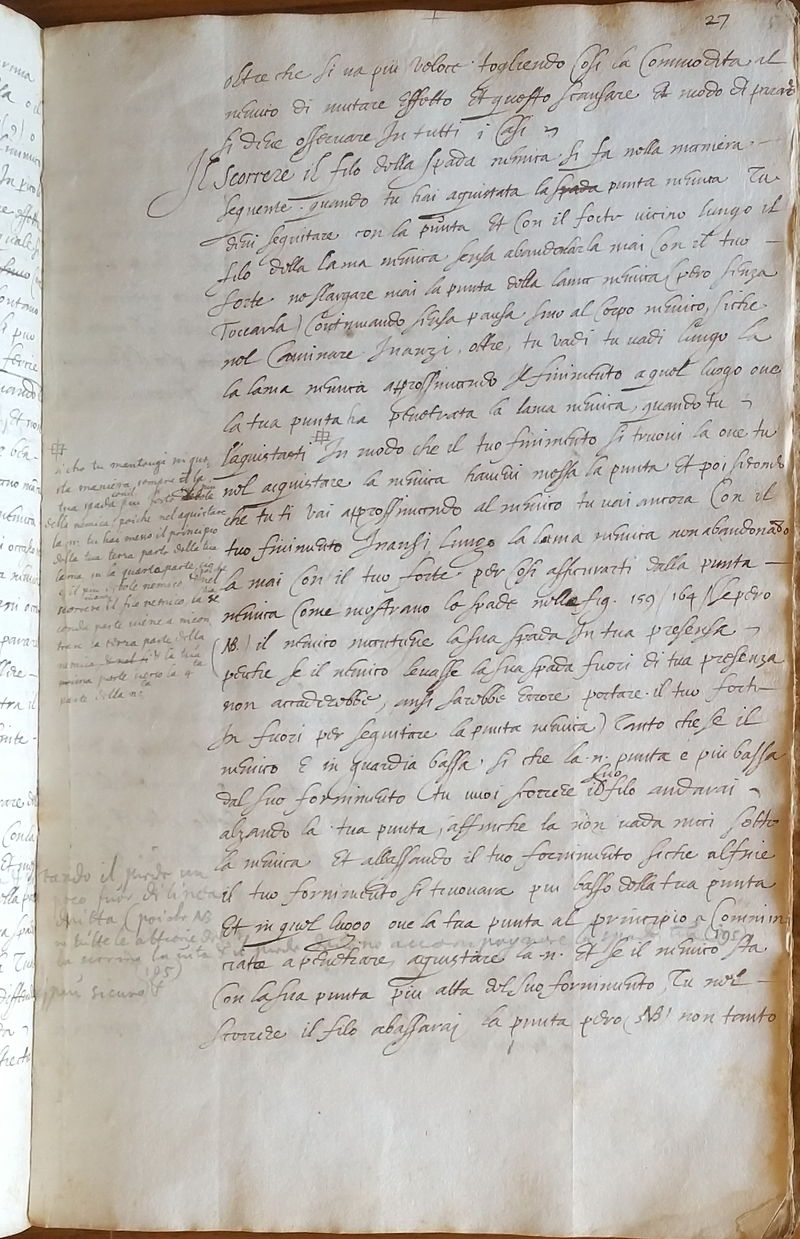 27
oltre che si va più veloce togliendo Così la Commodita al
nemico di mutare Effetto Et questo scansare Et modo di parare
si deve osservare In tutti i Casi
Il scorrere il filo della spada nemica si fa nella maniera
seguente. quando tu hai aquistata la spada punta nemica Tu
devi seguitare con la punta Et Con il forte vicino lungo il
filo della lama nemica sensa abandonarla mai Con il tuo
forte ne slargare mai la punta dalla lama nemica (pero sensa
Toccarla) Continuando sensa pausa sino al Corpo nemico, siche
nel Caminare Inanzi, oltre, tu vadi tu vadi lungo la
la lama nemica approssimando il finimento a quel luogo ove
la tua punta ha penetrata la lama nemica, quando tu
l'aquistasti In modo che il tuo finimento si truovi la ove tu
nel acquistare la nemica havevi messa la punta Et poi secondo
che tu ti vai approssimando al nemico tu vai ancora Con il
tuo finimento Inansi lungo la lama nemica non abandonando
la mai Con il tuo forte per Cosi assicurarti dalla punta
nemica Come mostrano le spade nelle fig. 159 / 164 / Se pero
(NB.) il nemico mantiene la sua spada In tua presensa
perche se il nemico levasse la sua spada fuori di tua presenza
non accaderebbe, ansi sarebbe Errore portare il tuo forte
In fuori per seguitare la punta nemica) Tanto che se il
nemico E in guardia bassa si che la .n. punta e piu bassa
dal suo fornimento (tu vuoi scorrere il suo filo andarai
alzando la tua punta, affinche la non vada mai sotto
la nemica Et abbassando il tuo fornimento siche alfine
il tuo fornimento si trovara piu basso della tua punta
Et in quel luogo ove la tua punta al principio a Commin
ciato a penetrare, aquistare la .n. Et se il nemico sta
Con la sua punta piu alta del suo fornimento, Tu nel
scorrere il filo abassarai la punta pero (NB) non tanto
siche tu mantengi in que
sta maniera sempre
tua spada piu forte
della nemica, poiche nel aquistare
la .n. tu hai messo il principio
della tua terza parte della tua
lama in la quarta parte
scorrere il filo nemico, la se
conda parte viene a incon
trare la terza parte della
nemica
prima parte verso la
parte della n.
tando il piede un
poco fuor di linea
diritta (poiche NB
in tutte le attione
piu sicuro